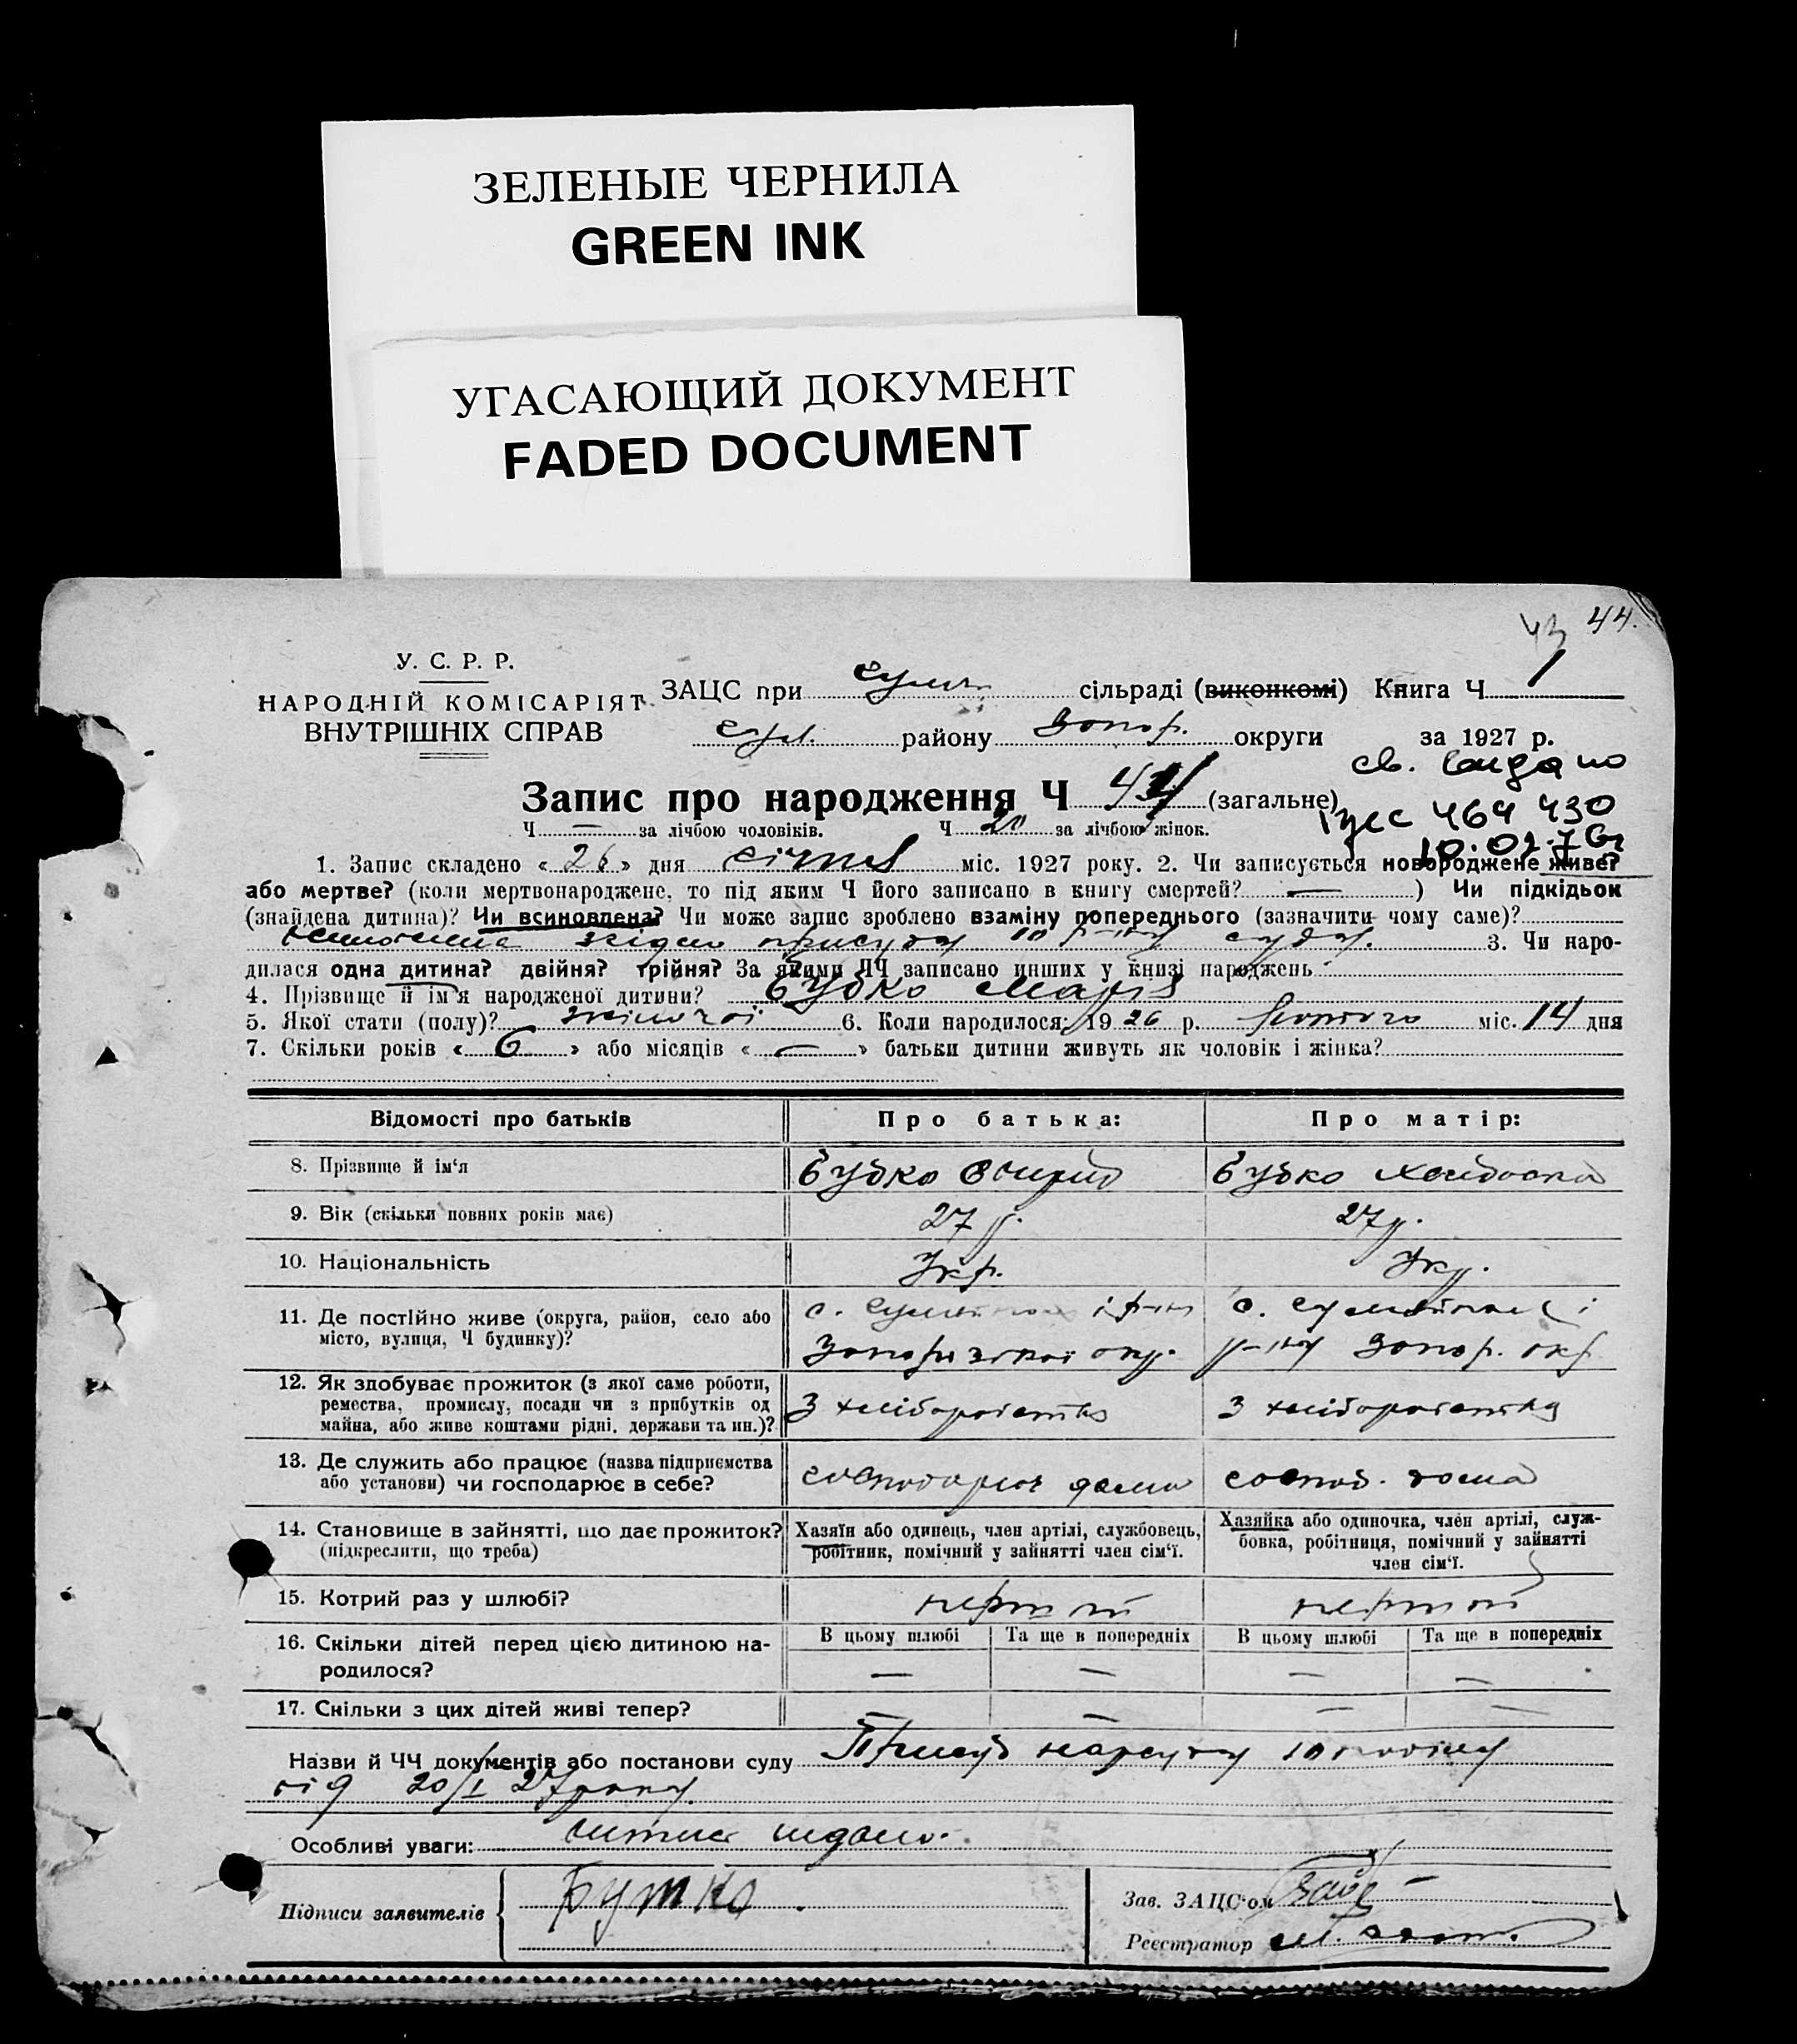 ЗЕЛЕНЫЕ ЧЕРНИЛА
GREEN INK
УГАСАЮЩИЙ ДОКУМЕНТ
FADED DOCUMENT
43 44.
У. С. Р. Р.
НАРОДНІЙ КОМІСАРІЯТ
ВНУТРІШНІХ СПРАВ
ЗАЦС при сільраді (виконкомі) Книга Ч 1
району Запор. округи за 1927 р.
св. видано
464 430
10.02.76г
Запис про народження Ч (загальне)
Ч — за лічбою чоловіків. Ч 20 за лічбою жінок.
1. Запис складено « 26 » дня січня міс. 1927 року. 2. Чи записується новороджене живе?
або мертве? (коли мертвонароджене, то під яким Ч його записано в книгу смертей? — ) Чи підкідьок
(знайдена дитина)? Чи всиновлена? Чи може запис зроблено взаміну попереднього (зазначити чому саме)?
згідно присуду 10 р-ну суду. 3. Чи наро-
дилася одна дитина? двійня? трійня? За якими ЧЧ записано инших у книзі народжень
4. Прізвище й ім'я народженої дитини? Бубко Марія
5. Якої стати (полу)? жіночої 6. Коли народилося: 1926 р. міс. 14 дня
7. Скільки років « 6 » або місяців « — » батьки дитини живуть як чоловік і жінка?
Відомості про батьків Про батька: Про матір:
8. Прізвище й ім'я Бубко Бубко
9. Вік (скільки повних років має) 27 р. 27 р.
10. Національність Укр. Укр.
11. Де постійно живе (округа, район, село або
місто, вулиця, Ч будинку)?
с. і р-ну
Запоризької окр.
с. і
р-ну Запор. окр
12. Як здобуває прожиток (з якої саме роботи,
ремества, промислу, посади чи з прибутків од
майна, або живе коштами рідні, держави та ин.)?
З хліборобства З хліборобства
13. Де служить або працює (назва підприємства
або установи) чи господарює в себе?
господарює дома господ. дома
14. Становище в зайнятті, що дає прожиток?
(підкреслити, що треба)
Хазяїн або одинець, член артілі, службовець,
робітник, помічний у зайнятті член сім'ї.
Хазяйка або одиночка, член артілі, служ-
бовка, робітниця, помічний у зайнятті
член сім'ї.
15. Котрий раз у шлюбі? перший перший
16. Скільки дітей перед цією дитиною на-
родилося?
В цьому шлюбі Та ще в попередніх В цьому шлюбі Та ще в попередніх
— — — —
17. Скільки з цих дітей живі тепер? — — — —
Назви й ЧЧ документів або постанови суду Присуд нарсуду 10
від 20/I 27 року.
Особливі уваги: видано.
Підписи заявителів Бутко
Зав. ЗАЦС'ом
Реєстратор